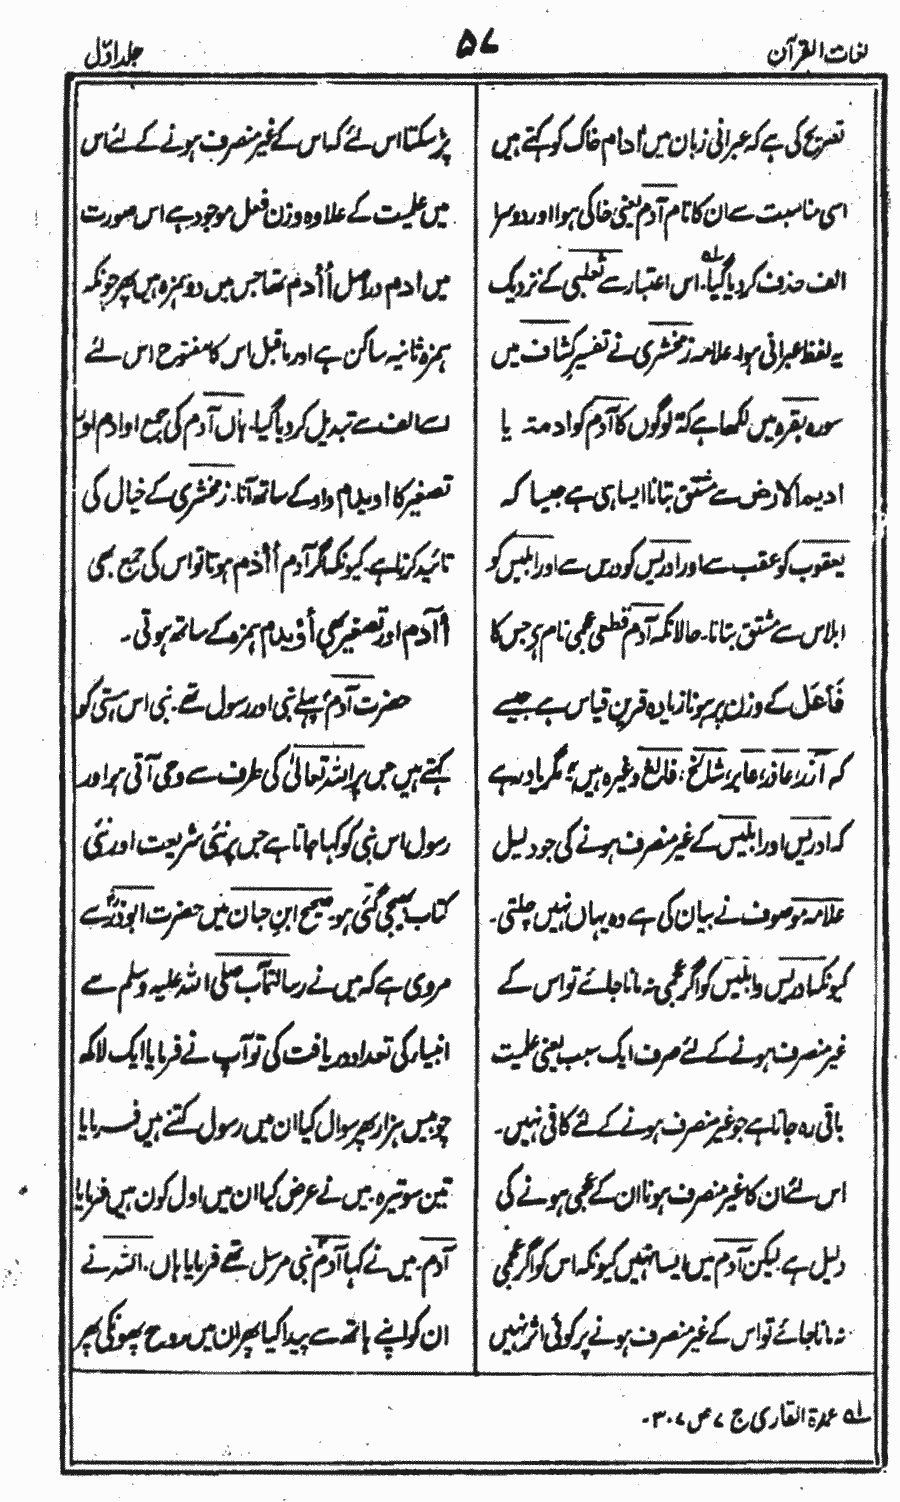 لغات القرآن
۵۷
جلد اوّل
تصریح کی ہے کہ عبرانی زبان میں أدام خاک کو کہتے ہیں
اسی مناسبت سے ان کا نام آدم یعنی خاکی ہوا اور دوسرا
الف حذف کر دیا گیا۔ اس اعتبار سے ثعلبی کے نزدیک
یہ لفظ عبرانی ہوا۔ علامہ زمخشری نے تفسیر کشاف میں
سورہ بقرہ میں لکھا ہے کہ لوگوں کا آدم کو ادمتہ یا
ادیم الارض سے مشتق بتانا ایسا ہی ہے جیسا کہ
یعقوب کو عقب سے اور ادریس کو درس سے اور ابلیس کو
ابلاس سے مشتق بتانا۔ حالانکہ آدم قطعی عجمی نام ہے جس کا
فَاعَل کے وزن پر ہونا زیادہ قرین قیاس ہے جیسے
کہ آزر، عاذر، عابر، شالخ، فالغ وغیرہ ہیں؛ مگر یاد رہے
کہ ادریس اور ابلیس کے غیر منصرف ہونے کی جو دلیل
علامہ موصوف نے بیان کی ہے وہ یہاں نہیں چلتی۔
کیونکہ ادریس و ابلیس کو اگر عجمی نہ مانا جائے تو اس کے
غیر منصرف ہونے کے لئے صرف ایک سبب یعنی علمیت
باقی رہ جاتا ہے جو غیر منصرف ہونے کے لئے کافی نہیں۔
اس لئے ان کا غیر منصرف ہونا ان کے عجمی ہونے کی
دلیل ہے لیکن آدم میں ایسا نہیں کیونکہ اس کو اگر عجمی
نہ مانا جائے تو اس کے غیر منصرف ہونے پر کوئی اثر نہیں
پڑ سکتا اس لئے کہ اس کے غیر منصرف ہونے کے لئے اس
میں علمیت کے علاوہ وزن فعل موجود ہے اس صورت
میں ادم دراصل أأدم تھا جس میں دو ہمزہ ہیں پھر چونکہ
ہمزہ ثانیہ ساکن ہے اور ماقبل اس کا مفتوح اس لئے
اسے الف سے تبدیل کر دیا گیا۔ ہاں آدم کی جمع اوادم اور
تصغیر کا اویدم واو کے ساتھ آنا۔ زمخشری کے خیال کی
تائید کرتا ہے۔ کیونکہ اگر آدم أأدم ہوتا تو اس کی جمع بھی
أآدم اور تصغیر بھی أؤیدم ہمزہ کے ساتھ ہوتی۔
حضرت آدم پہلے نبی اور رسول تھے۔ نبی اس ہستی کو
کہتے ہیں جس پر اللہ تعالیٰ کی طرف سے وحی آتی ہو اور
رسول اس نبی کو کہا جاتا ہے جس پر نئی شریعت اور نئی
کتاب بھیجی گئی ہو۔ صحیح ابن حبان میں حضرت ابوذر سے
مروی ہے کہ میں نے رسالتمآب صلی اللہ علیہ وسلم سے
انبیاء کی تعداد دریافت کی تو آپ نے فرمایا ایک لاکھ
چوبیس ہزار پھر سوال کیا ان میں رسول کتنے ہیں فرمایا
تین سو تیرہ۔ میں نے عرض کیا ان میں اول کون ہیں فرمایا
آدم۔ میں نے کہا آدم نبی مرسل تھے فرمایا ہاں۔ اللہ نے
ان کو اپنے ہاتھ سے پیدا کیا پھر ان میں روح پھونکی پھر
لہ عمدۃ القاری ج ۷ ص ۳۰۷۔